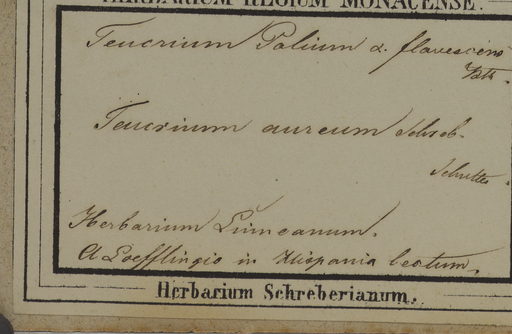 HERBARIUM REGIUM MONACENSE.
Teucrium Polium α. flavescens
Teucrium aureum Schreb.
Herbarium Linneanum.
A Loefflingio in Hispania lectum.
Herbarium Schreberianum.